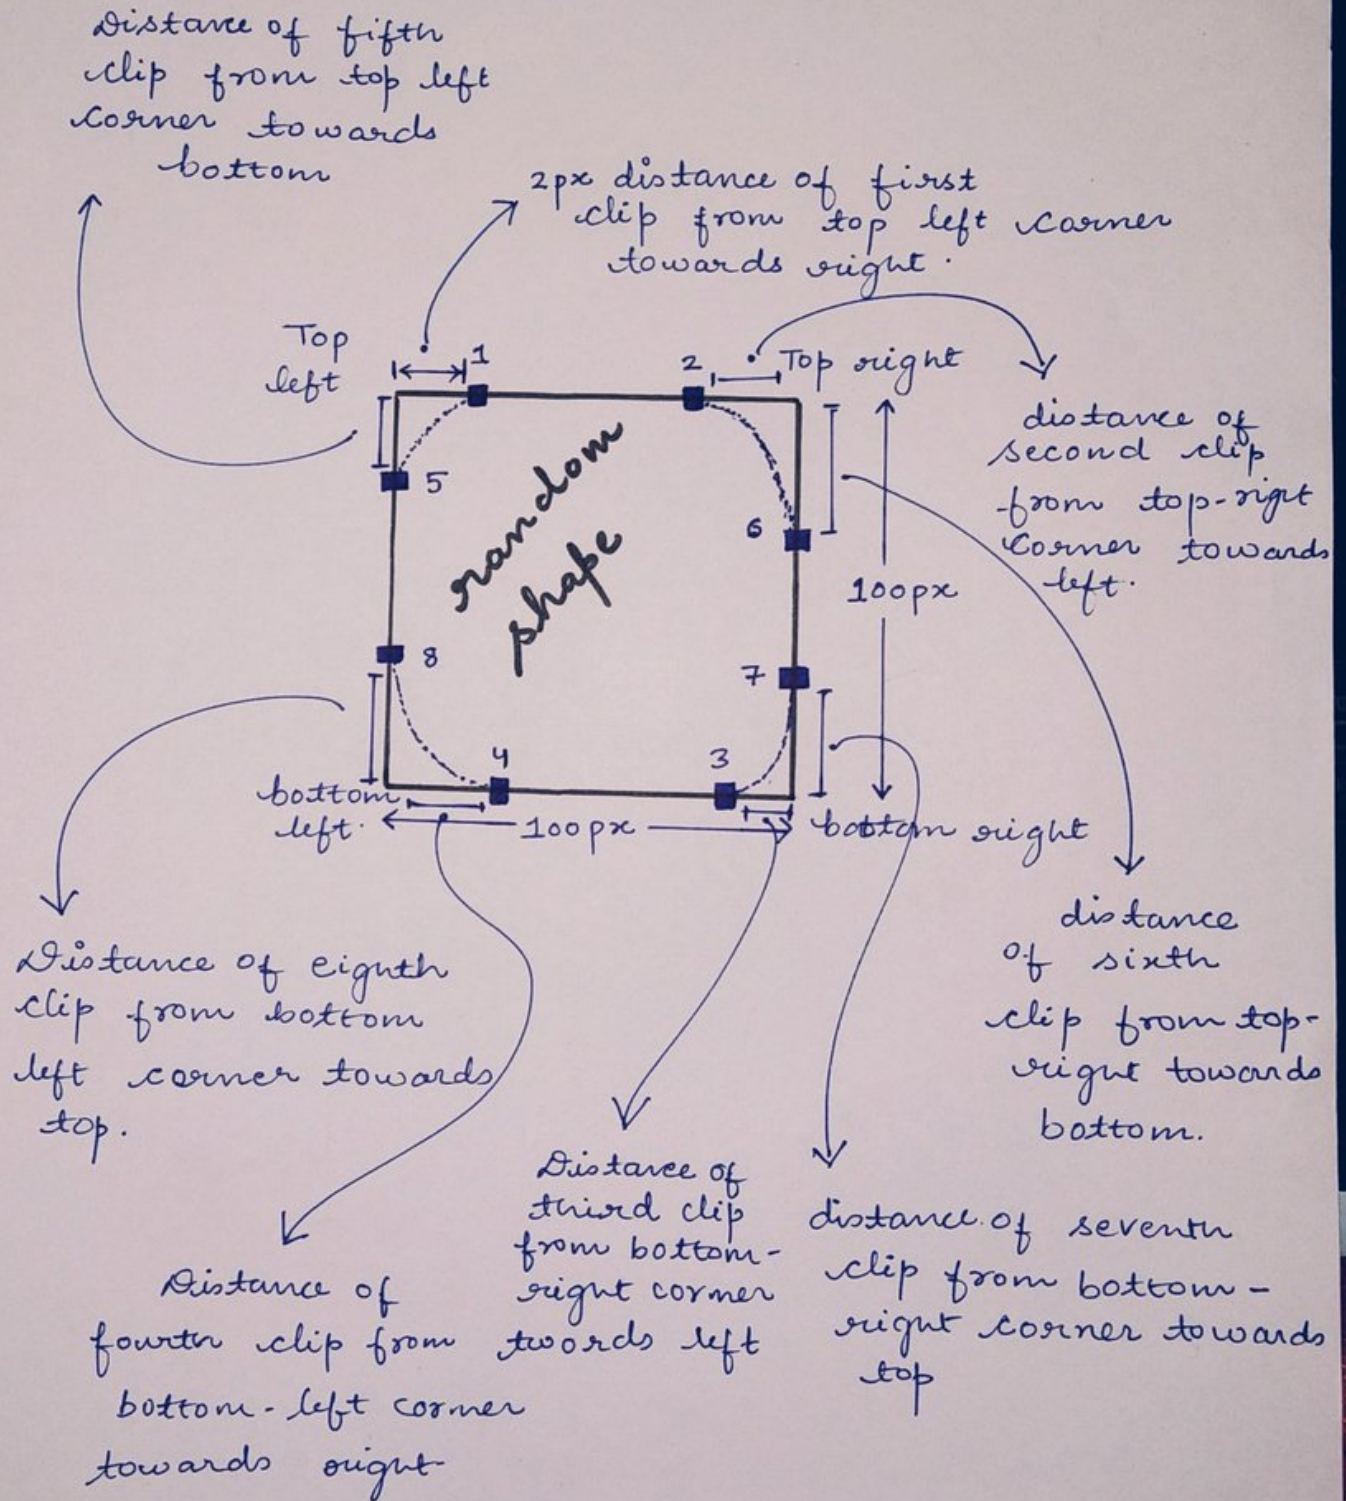 Distance of fifth
clip from top left
corner towards
bottom
2px distance of first
clip from top left corner
towards right.
Top
left
1
2
Top right
distance of
second clip
from top-right
corner towards
left.
5
random
shape
6
100px
8
7
4
3
bottom
left.
100px
bottom right
distance
of sixth
clip from top-
right towards
bottom.
Distance of eighth
clip from bottom
left corner towards
top.
Distance of
third clip
from bottom-
right corner
twords left
distance of seventh
clip from bottom-
right corner towards
top
Distance of
fourth clip from
bottom-left corner
towards right